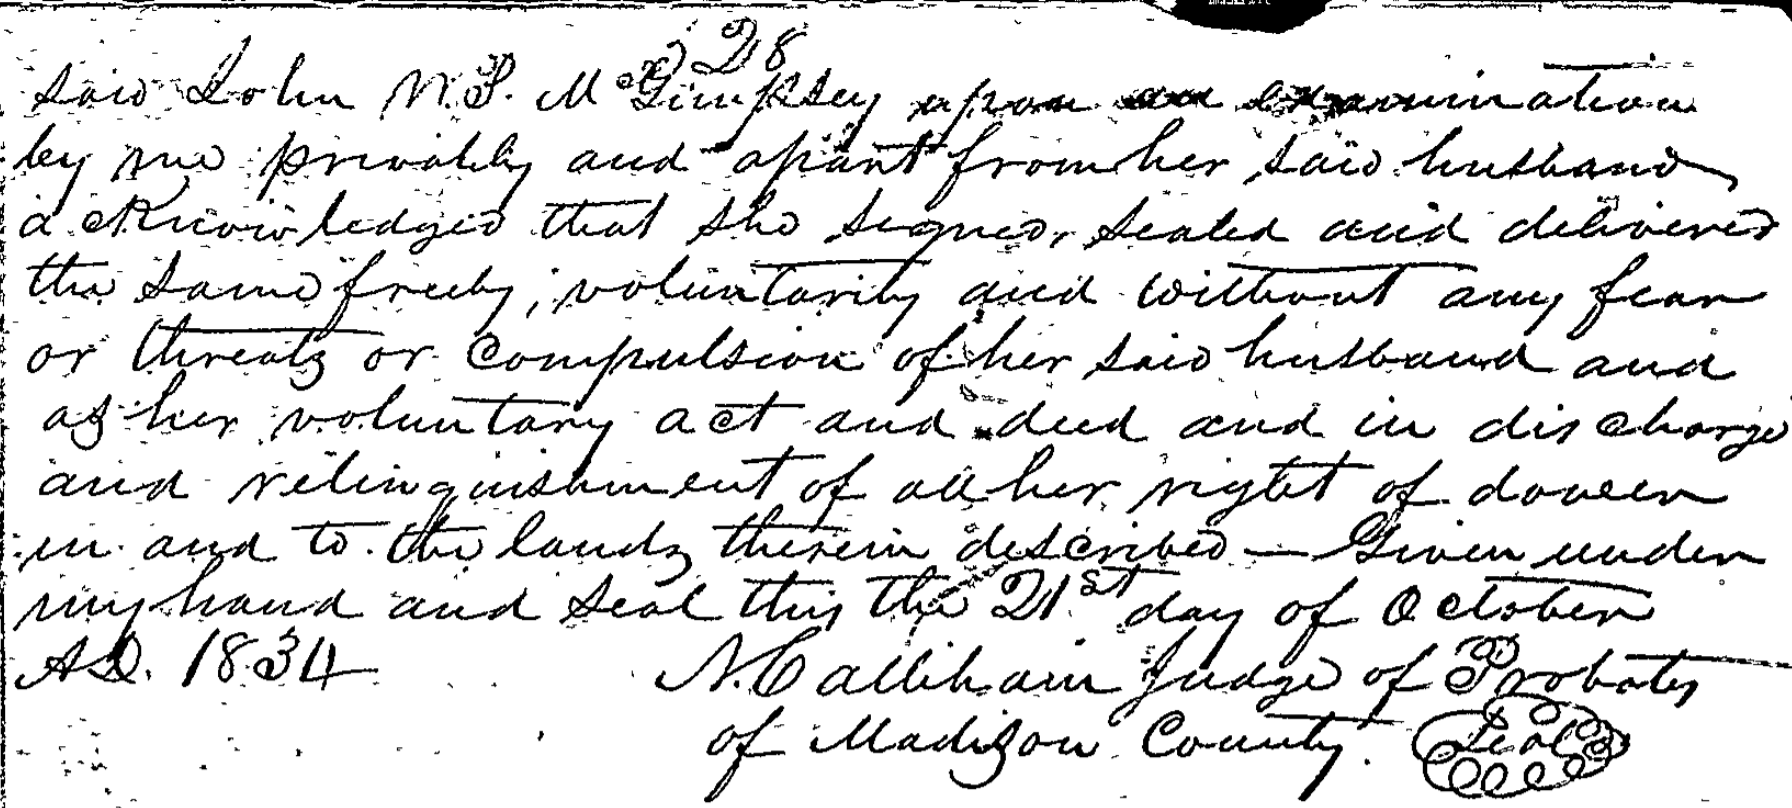 28
said John N. S. McGimpsey upon an examination
by me privately and apart from her said husband
acknowledged that she signed, sealed and delivered
the same freely, voluntarily and without any fear
or threats or compulsion of her said husband and
as her voluntary act and deed and in discharge
and relinquishment of all her right of dower
in and to the lands therein described — Given under
my hand and seal this the 21st day of October
AD. 1834
N. Calliham Judge of Probates
of Madison County. Seal